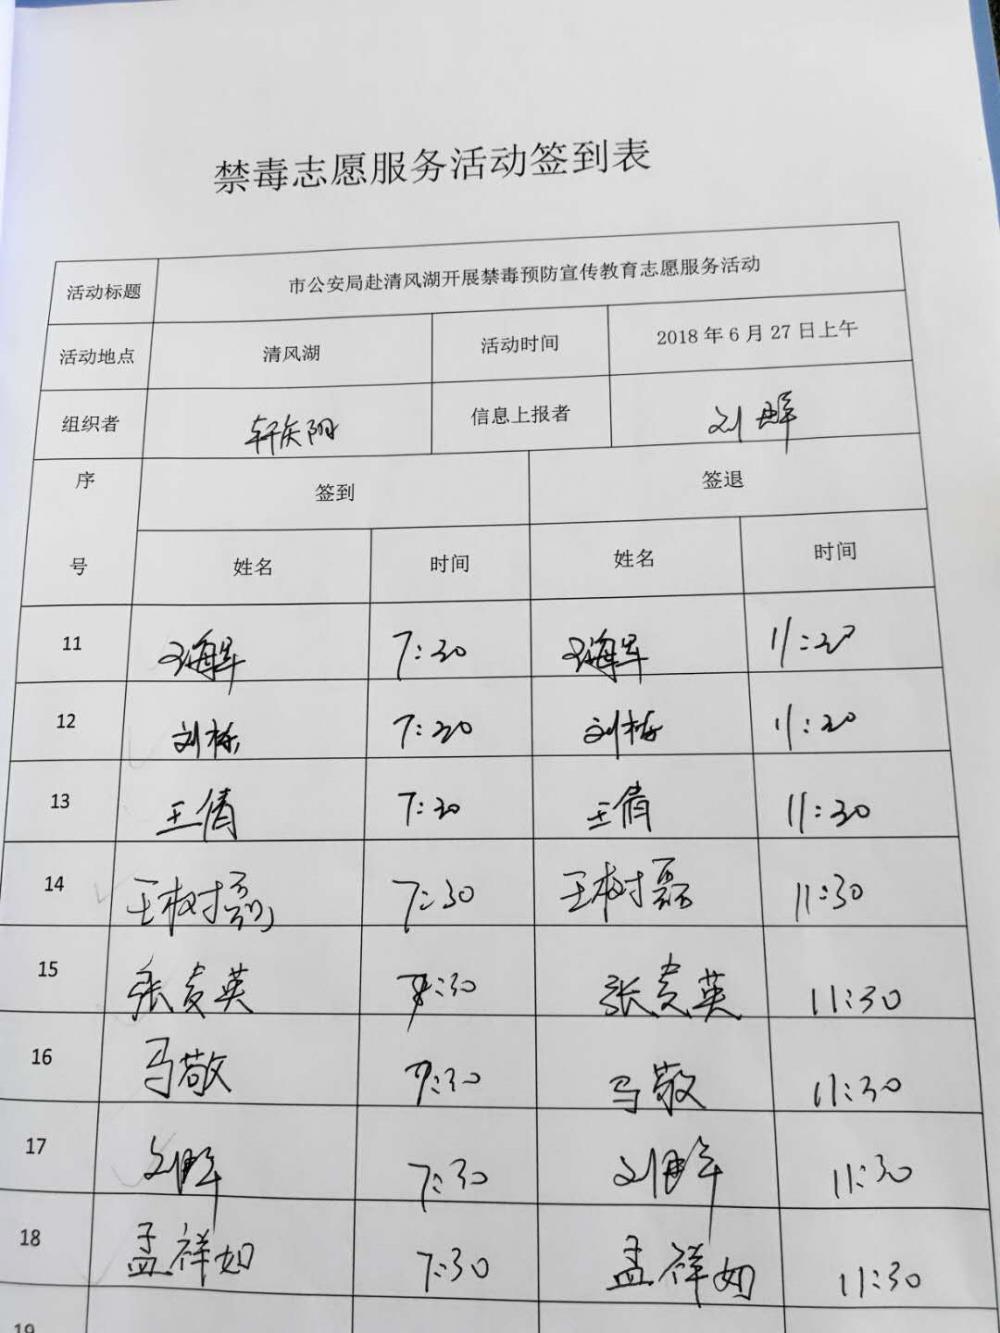 禁毒志愿服务活动签到表
活动标题 市公安局赴清风湖开展禁毒预防宣传教育志愿服务活动
活动地点 清风湖 活动时间 2018年6月27日上午
组织者 轩庆阳 信息上报者 刘
序号 签到 签退
姓名 时间 姓名 时间
11 王海军 7:30 王海军 11:30
12 刘栋 7:30 刘栋 11:30
13 王倩 7:30 王倩 11:30
14 王树磊 7:30 王树磊 11:30
15 张英 7:30 张英 11:30
16 马敬 7:30 马敬 11:30
17 刘 7:30 刘 11:30
18 孟祥如 7:30 孟祥如 11:30
19